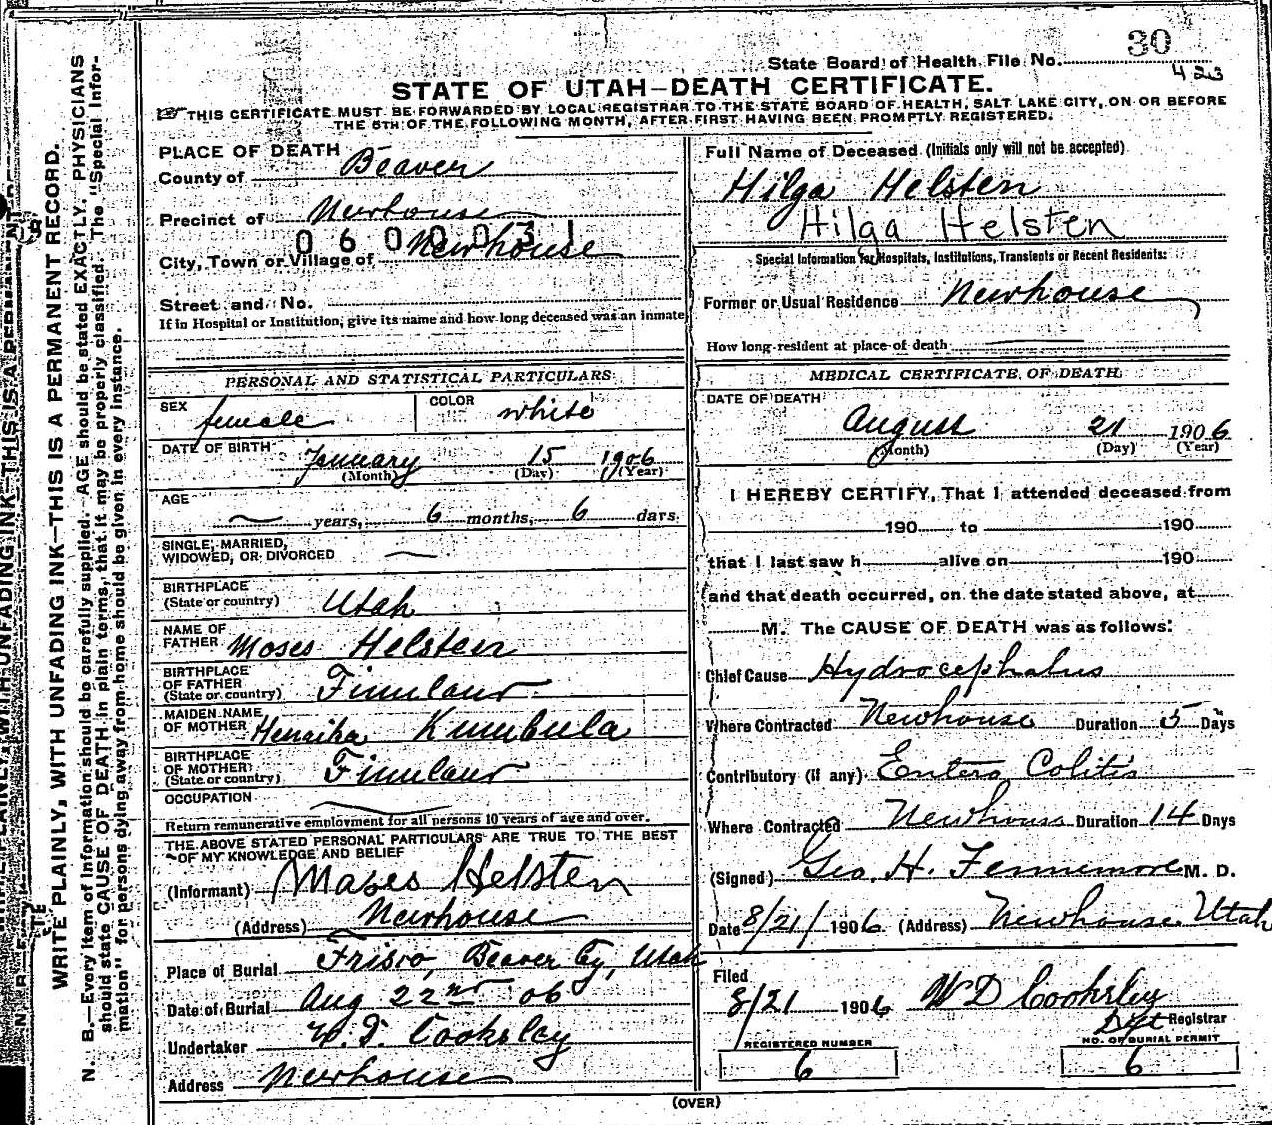 30
State Board of Health File No.
423
STATE OF UTAH—DEATH CERTIFICATE.
THIS CERTIFICATE MUST BE FORWARDED BY LOCAL REGISTRAR TO THE STATE BOARD OF HEALTH, SALT LAKE CITY, ON OR BEFORE
THE 5TH OF THE FOLLOWING MONTH, AFTER FIRST HAVING BEEN PROMPTLY REGISTERED.
PLACE OF DEATH
County of Beaver
Precinct of Newhouse
0600031
City, Town or Village of Newhouse
Street and No.
If in Hospital or Institution, give its name and how long deceased was an inmate
Full Name of Deceased (Initials only will not be accepted)
Hilga Helsten
Hilga Helsten
Special Information for Hospitals, Institutions, Transients or Recent Residents:
Former or Usual Residence Newhouse
How long resident at place of death
PERSONAL AND STATISTICAL PARTICULARS
SEX female COLOR white
DATE OF BIRTH January 15 1906
(Month) (Day) (Year)
AGE
years, 6 months, 6 days.
SINGLE, MARRIED,
WIDOWED, OR DIVORCED
BIRTHPLACE
(State or country) Utah
NAME OF
FATHER Moses Helsten
BIRTHPLACE
OF FATHER
(State or country) Finland
MAIDEN NAME
OF MOTHER Kumbula
BIRTHPLACE
OF MOTHER
(State or country) Finland
OCCUPATION
Return remunerative employment for all persons 10 years of age and over.
THE ABOVE STATED PERSONAL PARTICULARS ARE TRUE TO THE BEST
OF MY KNOWLEDGE AND BELIEF
(Informant) Moses Helsten
(Address) Newhouse
Place of Burial Frisco, Beaver Cy, Utah
Date of Burial Aug 22nd 06
Undertaker W. D. Cooksley
Address Newhouse
MEDICAL CERTIFICATE OF DEATH
DATE OF DEATH
August 21 1906
(Month) (Day) (Year)
I HEREBY CERTIFY, That I attended deceased from
190 to 190
that I last saw h alive on 190
and that death occurred, on the date stated above, at
M. The CAUSE OF DEATH was as follows:
Chief Cause Hydrocephalus
Where Contracted Newhouse Duration 5 Days
Contributory (if any) Entero Colitis
Where Contracted Newhouse Duration 14 Days
(Signed) Geo. H. Fennemore M. D.
Date 8/21/ 1906 (Address) Newhouse Utah
Filed
8/21 1906 W D Cooksley
Dpt Registrar
REGISTERED NUMBER
6
NO. OF BURIAL PERMIT
6
(OVER)
WRITE PLAINLY, WITH UNFADING INK—THIS IS A PERMANENT RECORD.
N. B.—Every item of information should be carefully supplied. AGE should be stated EXACTLY. PHYSICIANS
should state CAUSE OF DEATH in plain terms, that it may be properly classified. The "Special Infor-
mation" for persons dying away from home should be given in every instance.